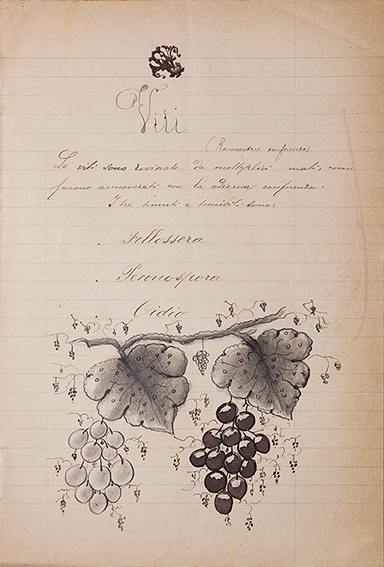 Viti
(Rammentare conferenza)
Le viti sono rovinate da molteplici mali, come
furono annoverati con la odierna conferenza.
I tre temuti e temibili sono:
. Fillossera
. Pennospora
Oidio